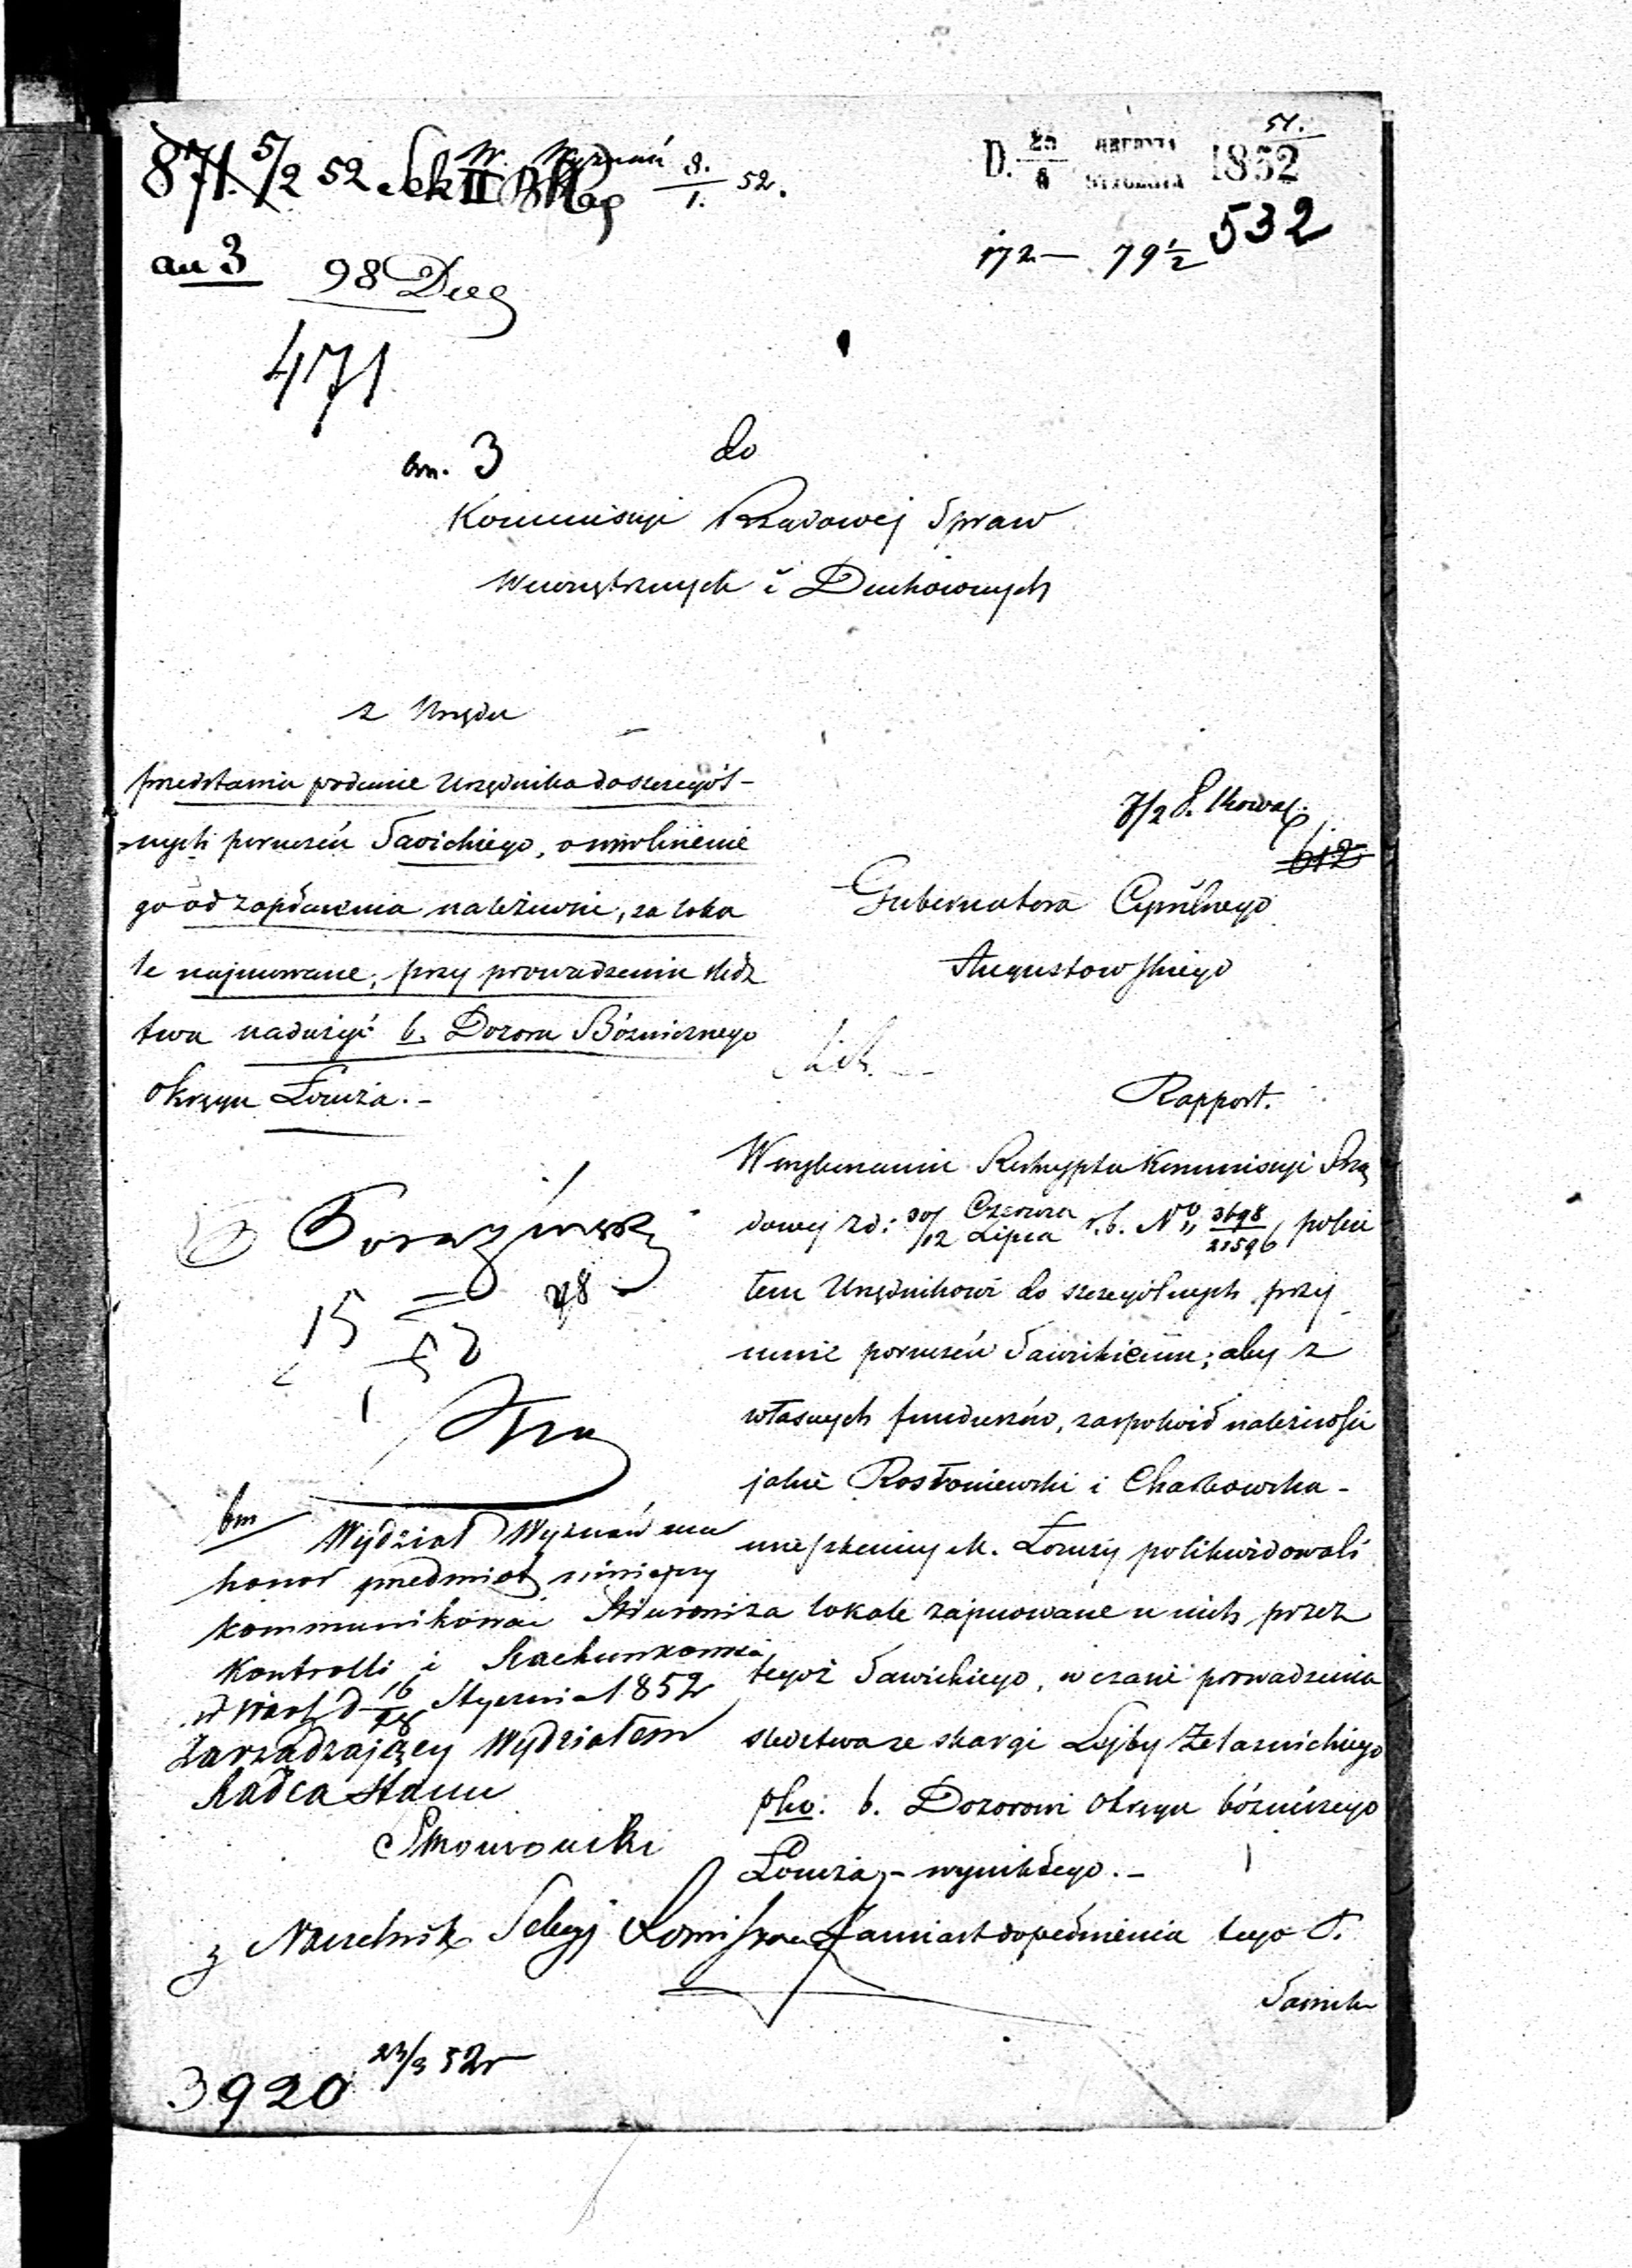 871. 5/2 52 Sek II W. Wyznań 8./1. 52.
D. 25/6 GRUDNIA STYCZNIA 51./1852
an 3
98
172 — 79 1/2 532
471
bm. 3
do
Kommissyi Rządowej Spraw
Wewnętrznych i Duchownych
z Urzędu
przedstawia podanie Urzędnika do szczegól-
nych poruczeń Sawickiego, o uwolnienie
go od zapłacenia należności, za loka
le najmowane, przy prowadzeniu śledz
twa nadużyć b. Dozoru Bóżnicznego
Okręgu Łomża. -
7/2
612
Gubernatora Cywilnego
Augustowskiego
Rapport.
W wykonaniu Reskryptu Kommissyi Rzą
dowej zd: 30/12 Czerwca/Lipca r.b. No 3698/21596, poleci
łem Urzędnikowi do szczególnych przy
mnie poruczeń Sawickiemu; aby z
własnych funduszów, zaspokoił należności
jakie Rostoniewski i Charbowska -
mieszkańcy M. Łomży polikwidowali
za lokale zajmowane u nich przez
tegoż Sawickiego, w czasie prowadzenia
śledztwa ze skargi Lejby Żelaznickiego
pko: b. Dozorowi Okręgu bóżniczego
Łomża, - wynikłego. -
Zamiast dopełnienia tego P.
Sawicki
15
52
bm Wydział Wyznań ma
honor przedmiot niniejszy
kommunikować
Kontrolli i Rachunkowości
w Warsz. d 16/28 Stycznia 1852 r
Zarządzający Wydziałem
Radca Stanu
z Naczelnik Sekcyi
3920 23/3 52 r